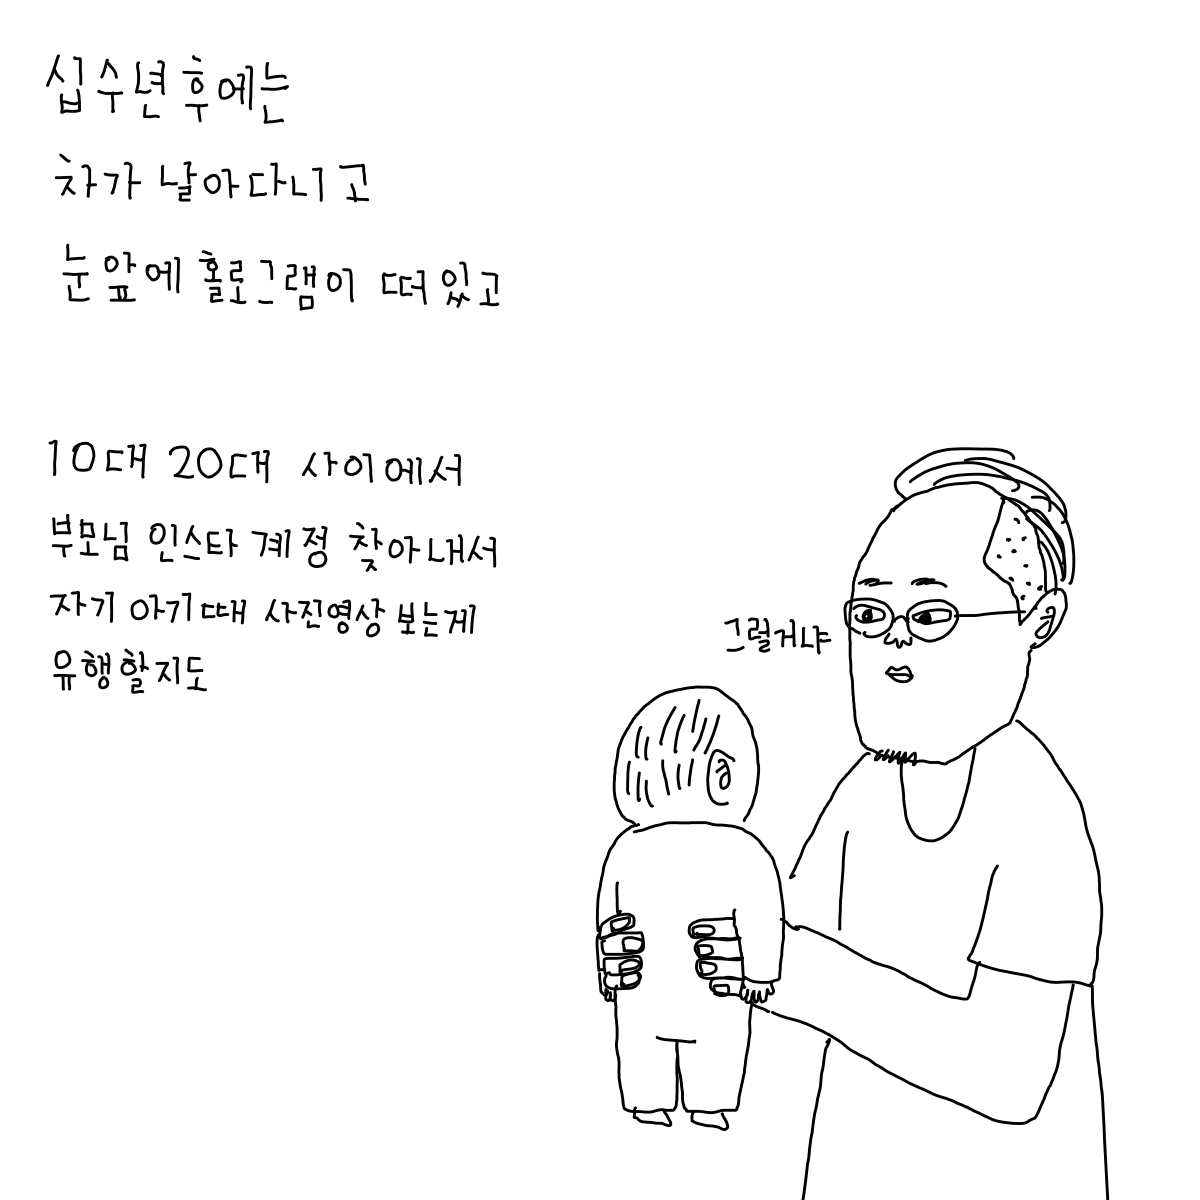 십수년 후에는
차가 날아다니고
눈 앞에 홀로그램이 떠 있고
10대 20대 사이에서
부모님 인스타 계정 찾아내서
자기 아기때 사진영상 보는게
유행할지도
그럴거냐